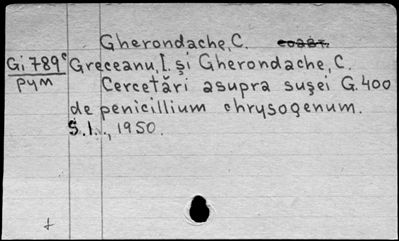 Gherondache, C.
Gi 789c Greceanu, I. şi Gherondache, C.
PYM Cercetări asupra suşei G. 400
de penicillium chrysogenum.
S.l., 1950.